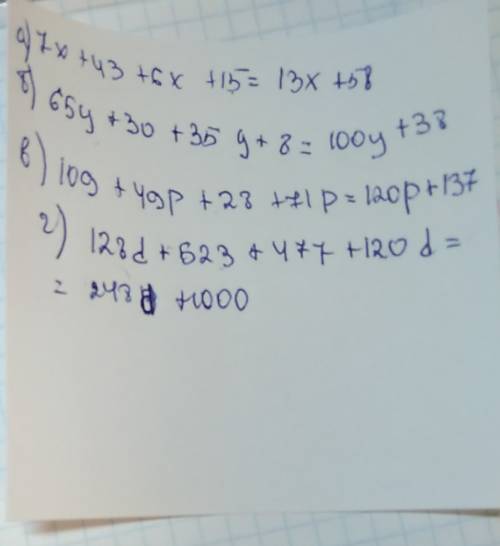 а) 7x + 43 + 6x + 15 = 13x + 58
б) 65y + 30 + 35 y + 8 = 100y + 38
в) 109 + 49p + 28 + 71p = 120p + 137
г) 128d + 523 + 477 + 120 d =
= 248d + 1000